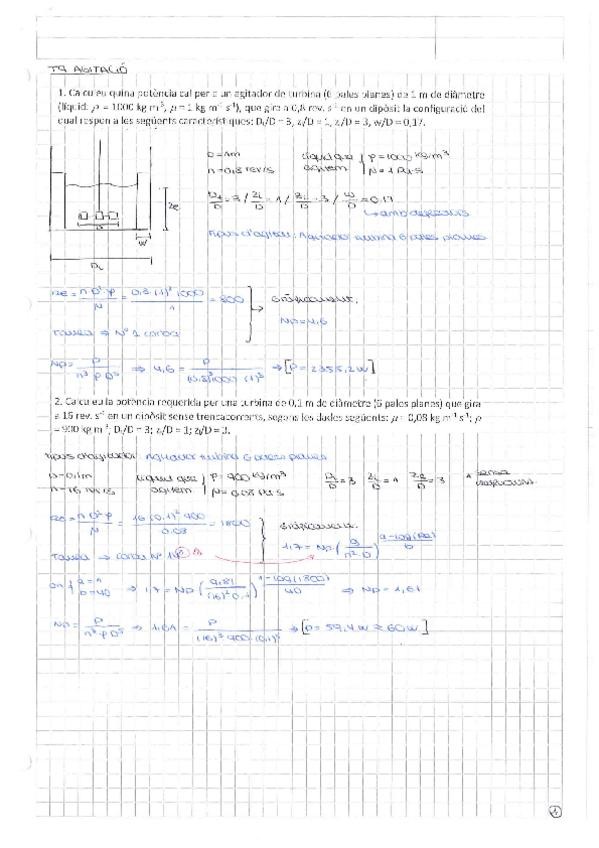 T9 AGITACIÓ
1. Calculeu quina potència cal per a un agitador de turbina (6 pales planes) de 1 m de diàmetre
(líquid: ρ = 1000 kg m⁻³, μ = 1 kg m⁻¹ s⁻¹), que gira a 0,8 rev. s⁻¹ en un dipòsit la configuració del
qual respon a les següents característiques: Dₜ/D = 3, zᵢ/D = 1, zₗ/D = 3, w/D = 0,17.
D = 1m
n = 0,8 rev/s
líquid que tenim
ρ = 1000 kg/m³
μ = 1 Pa·s
Dt/D = 3 / Zi/D = 1 / Zl/D = 3 / w/D = 0.17
→ amb deflectors
Tipus d'agitador: Agitador turbina 6 pales planes
ze
D
w
Dt
Re = n·D²·ρ/μ = 0,8·(1)²·1000/1 = 800
Gràficament:
NP = 4,6
Taula ⇒ Nº 1 corba
NP = P/n³ρD⁵ ⇒ 4,6 = P/(0.8)³1000·(1)⁵ ⇒ [P = 2355,2 W]
2. Calculeu la potència requerida per una turbina de 0,1 m de diàmetre (6 pales planes) que gira
a 16 rev. s⁻¹ en un dipòsit sense trencacorrents, segons les dades següents: μ = 0,08 kg m⁻¹ s⁻¹; ρ
= 900 kg m⁻³; Dₜ/D = 3; zᵢ/D = 1; zₗ/D = 3.
Tipus d'agitador: Agitador turbina 6 pales planes
D = 0.1m
n = 16 rev/s
líquid que tenim
ρ = 900 kg/m³
μ = 0.08 Pa·s
Dt/D = 3 Zi/D = 1 Zl/D = 3
* sense
Re = n·D²·ρ/μ = 16·(0.1)²·900/0.08 = 1800
Gràficament:
1,7 = NP (g/n²·D)^(a-log(Re)/b)
Taula → corba Nº 1
on a = 1 b = 40 ⇒ 1,7 = NP (9,81/(16)²·0.1)^(1-log(1800)/40) ⇒ NP = 1,61
NP = P/n³·ρ·D⁵ ⇒ 1,61 = P/(16)³·900·(0,1)⁵ ⇒ [P = 59,4 W ≈ 60 W]
1